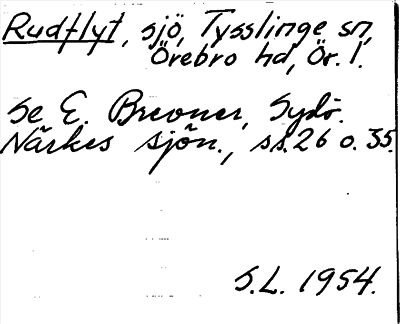 Rudflyt, sjö, Tysslinge sn,
Örebro hd, Ör. l.
Se E. Brevner, Sydö.
Närkes sjön., ss. 26 o. 35.
S.L. 1954.